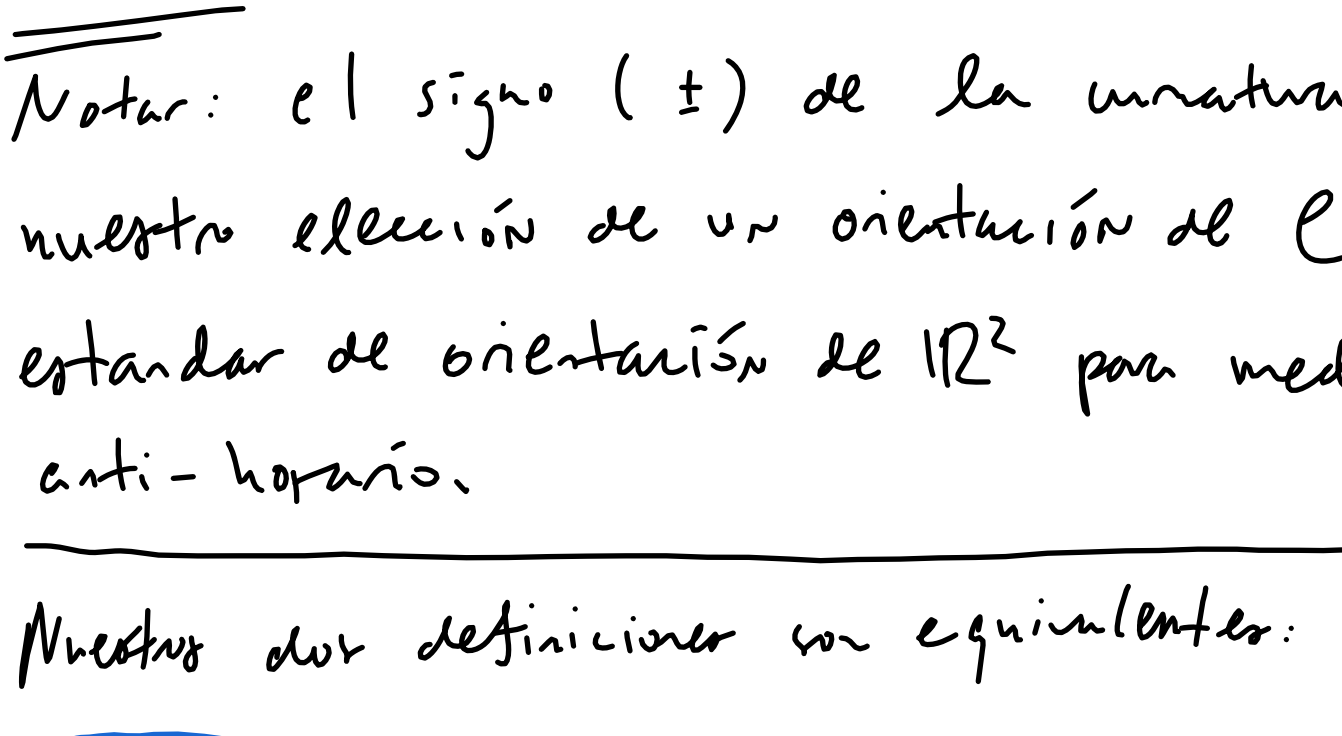 Notar: el signo (±) de la curvatura
nuestro elección de un orientación de C
estandar de orientación de ℝ² para med
anti-horario.
Nuestros dos definiciones son equivalentes: